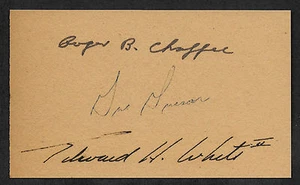 Roger B. Chaffee
Gus Grissom
Edward H. White II